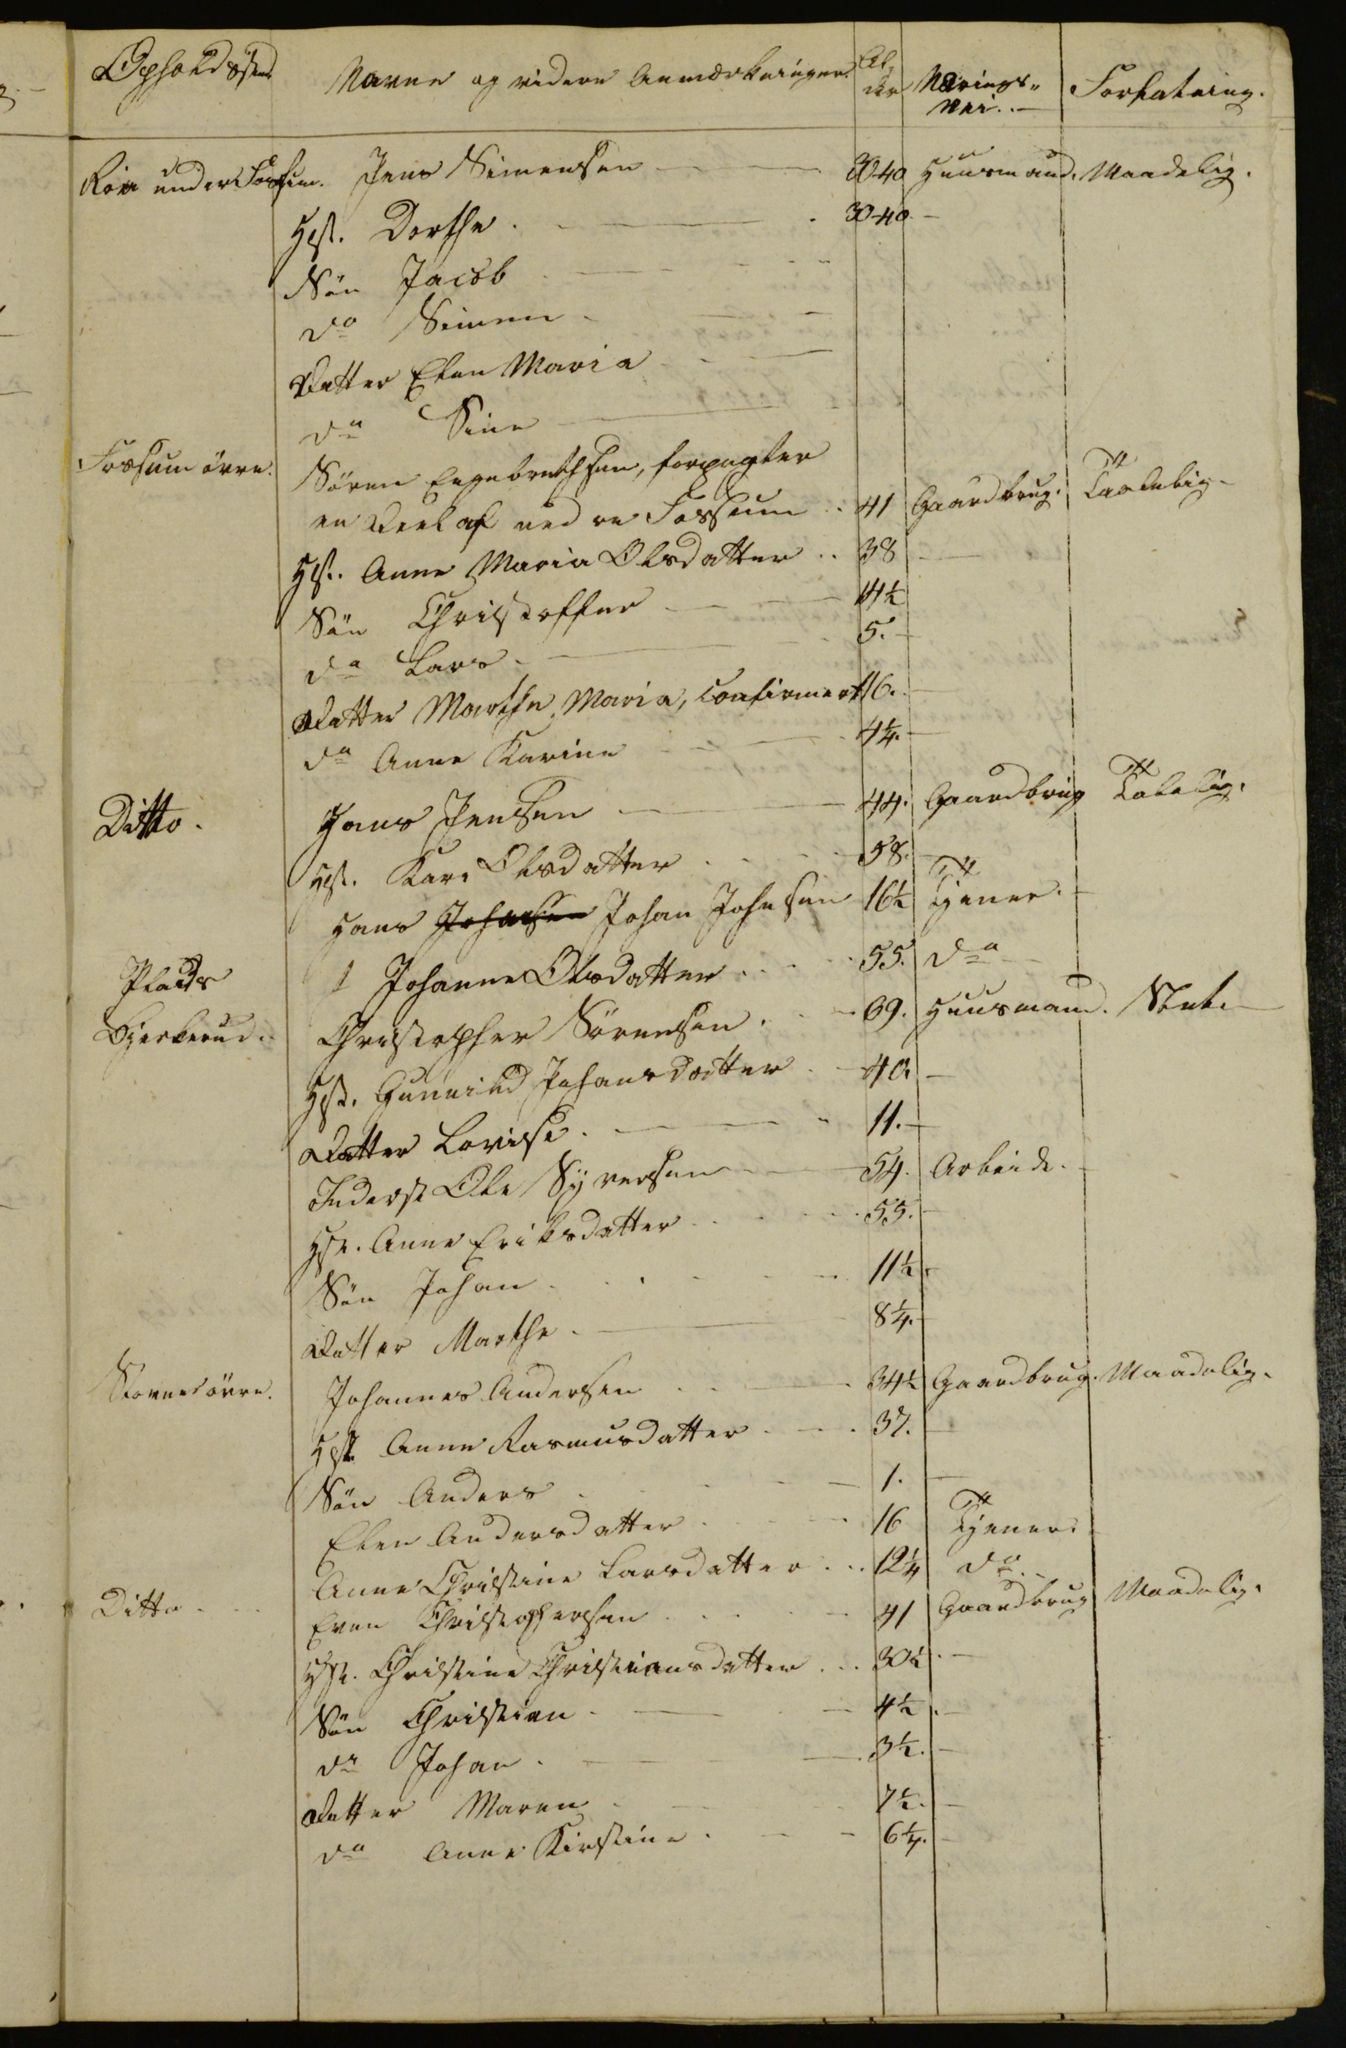 Opholdssted Navne og videre Anmærkninger. Al-der Nærings-vei. Forfatning.
Röa under Fossum. Jens Simensen 30-40 Huusmand. Maadelig.
Hst. Dorthe 30-40
Sön Jacob
do Simen
Datter Elen Maria
do Sine
Fossum övre. Sören Engebrethsen, forpagter
en Deel af nedre Fossum 41 Gaardbrug. Taalelig.
Hst. Anne Maria Olsdatter 38
Sön Christoffer 14½
do Lars 5.
Datter Marthe Maria, confirmert 16.
do Anne Karine 4¼.
Ditto. Hans Jensen 44. Gaardbrug Taalelig.
Hst. Kari Olsdatter 58.
Hans Johansen Johan Johnsen 16½ Tjener.
1 Johanne Olsdatter 55. do
Plads
Bjerkerud. Christopher Sörensen 69. Huusmand. Slet.
Hst. Gunnild Johansdatter 40.
Datter Lovise 11.
Inderst Ole Syversen 54. Arbeide.
Hst. Anne Eriksdatter 55.
Sön Johan 11½.
Datter Marthe 8¼.
Stovner övre. Johannes Andersen 34½ Gaardbrug. Maadelig.
Hst. Anne Rasmusdatter 37.
Sön Anders 1.
Elen Andersdatter 16 Tjener.
Anne Christine Larsdatter 12¼ do
Ditto Even Christophersen 41 Gaardbrug Maadelig.
Hst. Christine Christiansdatter 30½
Sön Christian 4½
do Johan 3½.
Datter Maren 7½.
do Anne Kirstine 6¼.